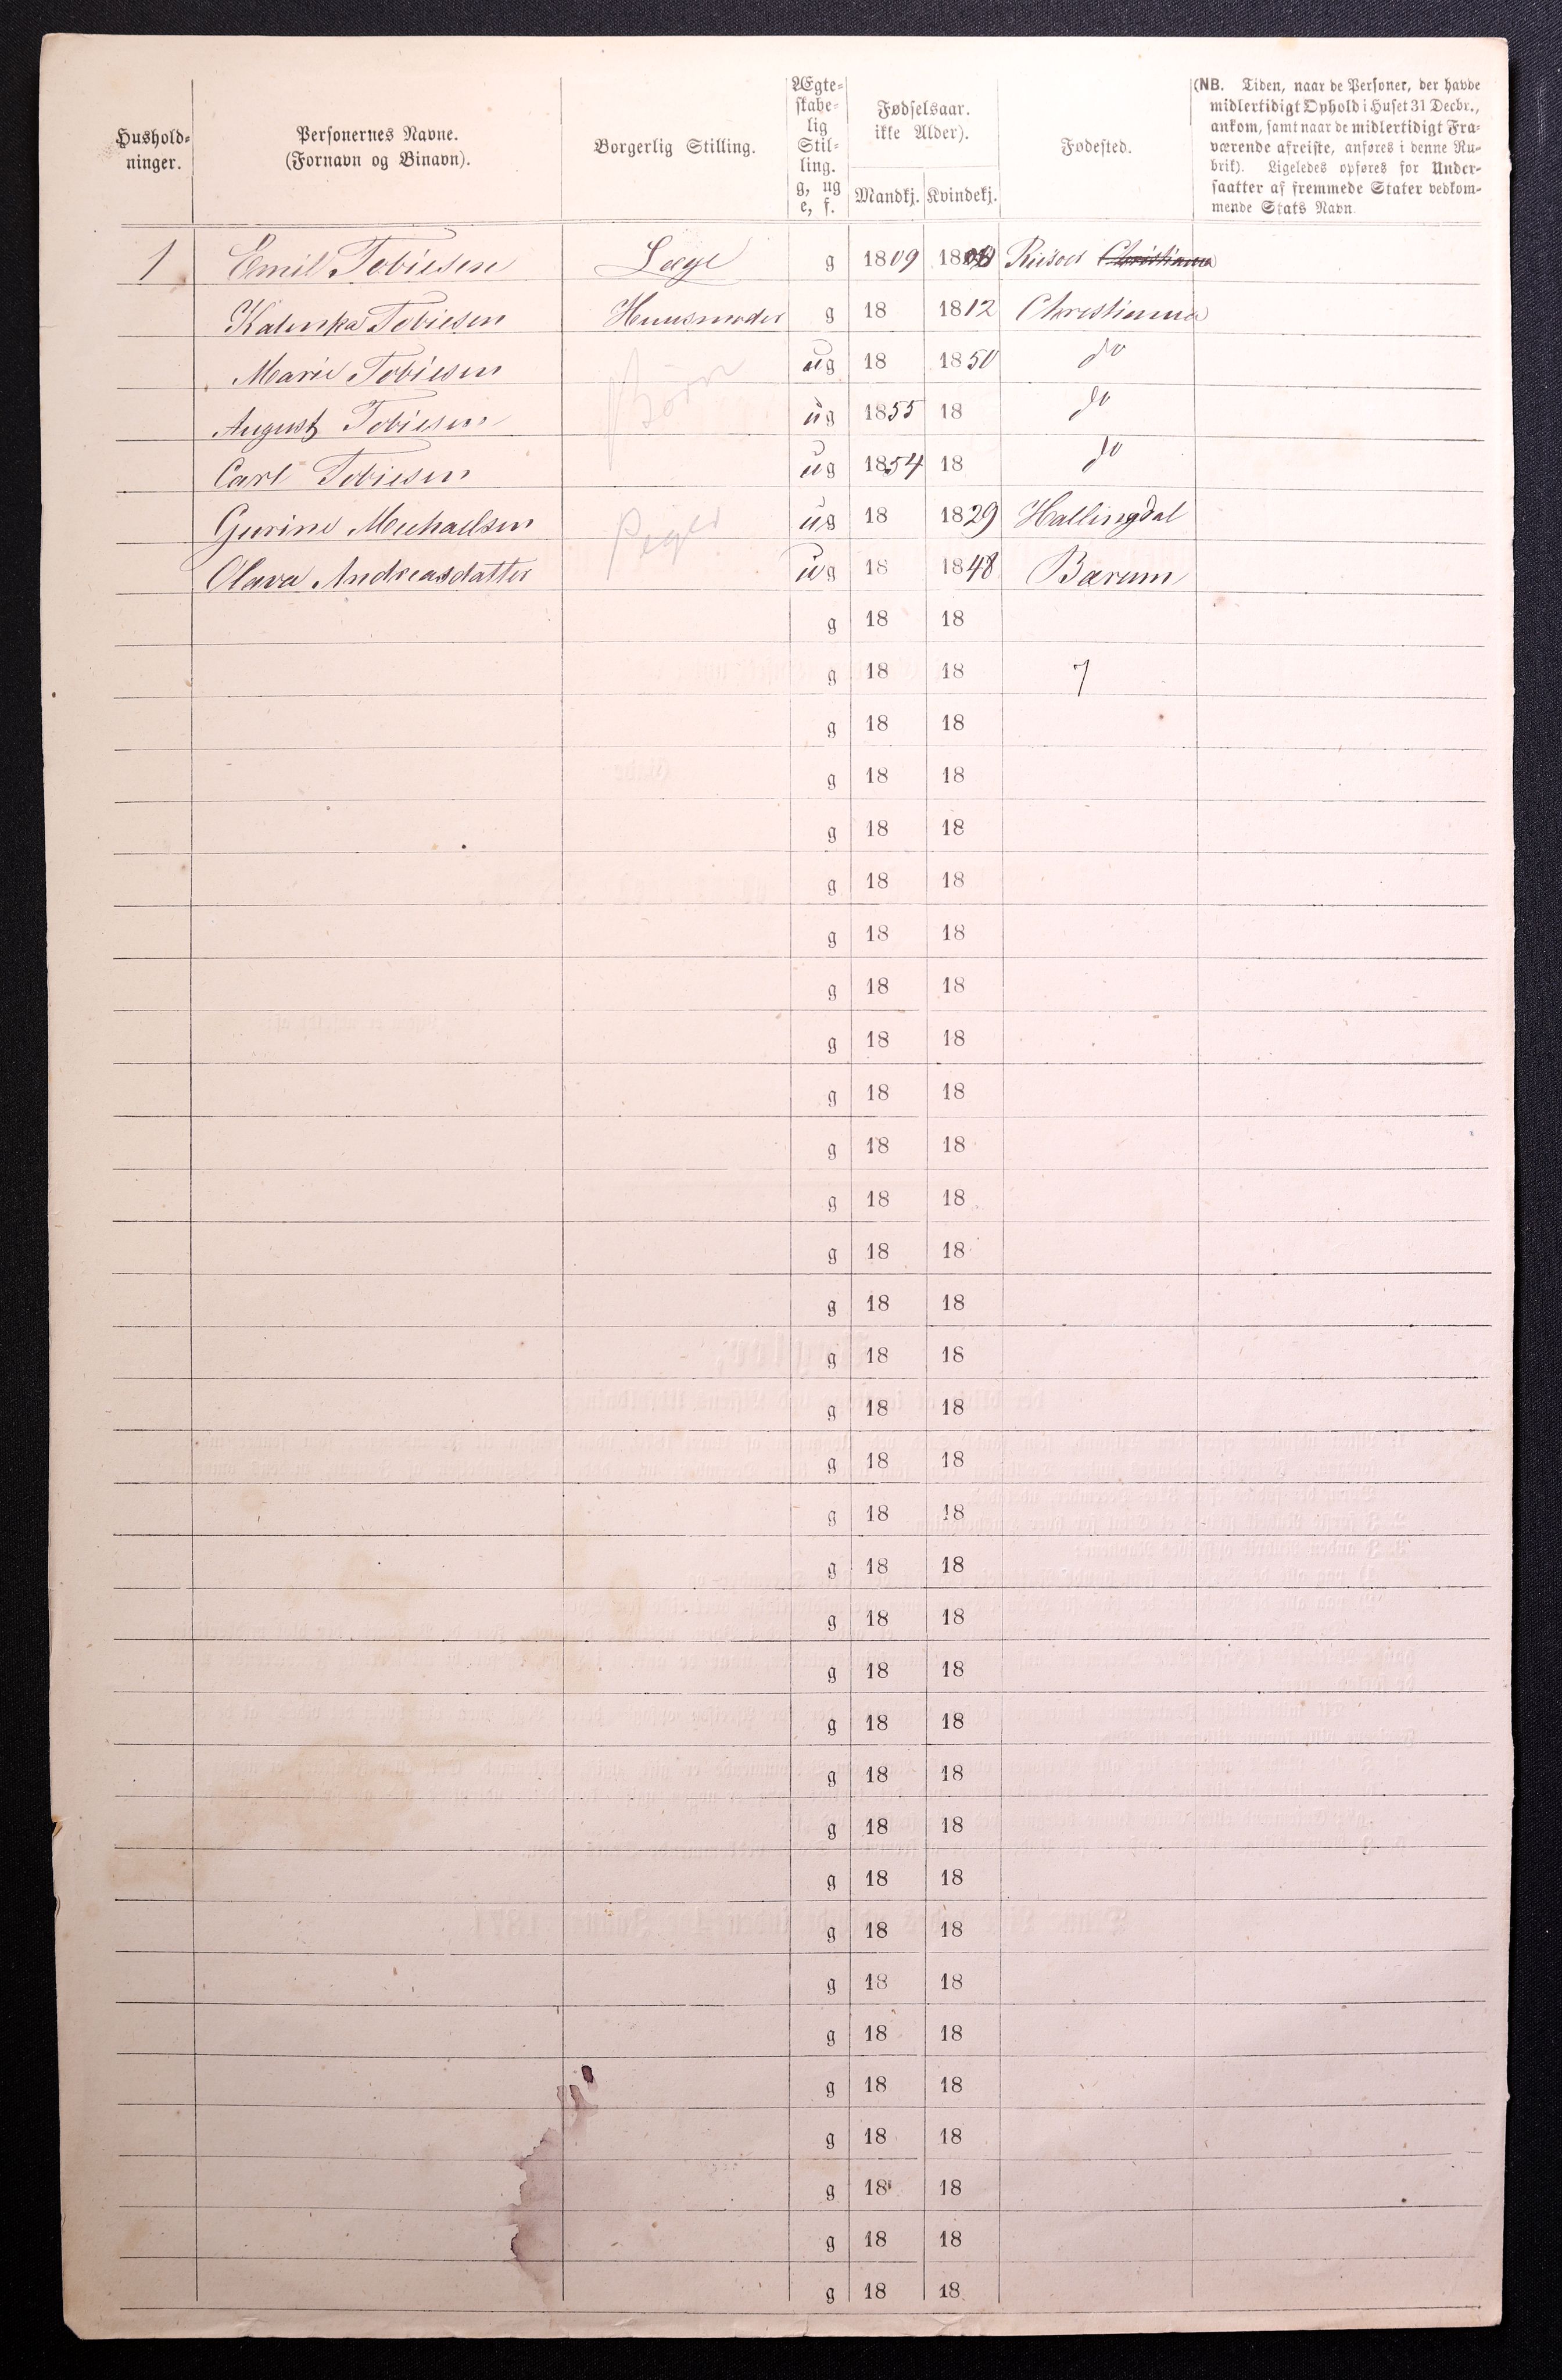 Hushold-
ninger.
Personernes Navne.
(Fornavn og Binavn).
Borgerlig Stilling.
Ægte-
skabe-
lig
Stil-
ling.
g, ug
e, f.
Fødselsaar.
ikke Alder).
Mandkj. Kvindekj.
Fødested.
(NB. Tiden, naar de Personer, der havde
midlertidigt Ophold i Huset 31 Decbr.,
ankom, samt naar de midlertidigt Fra-
værende afreiste, anføres i denne Ru-
brik). Ligeledes opføres for Under-
saatter af fremmede Stater vedkom-
mende Stats Navn.
1 Emil Tobiesen Læge g 1809 18 Riisøer Christiania
Kalinka Tobiesen Huusmoder g 18 1812 Christiania
Marie Tobiesen Børn ug 18 1850 do
August Tobiesen ug 1855 18 do
Carl Tobiesen ug 1854 18 do
Gurine Michaelsen Piger ug 18 1829 Hallingdal
Olava Andreasdatter ug 18 1848 Bærum
g 18 18
g 18 18 7
g 18 18
g 18 18
g 18 18
g 18 18
g 18 18
g 18 18
g 18 18
g 18 18
g 18 18
g 18 18
g 18 18
g 18 18
g 18 18
g 18 18
g 18 18
g 18 18
g 18 18
g 18 18
g 18 18
g 18 18
g 18 18
g 18 18
g 18 18
g 18 18
g 18 18
g 18 18
g 18 18
g 18 18
g 18 18
g 18 18
g 18 18